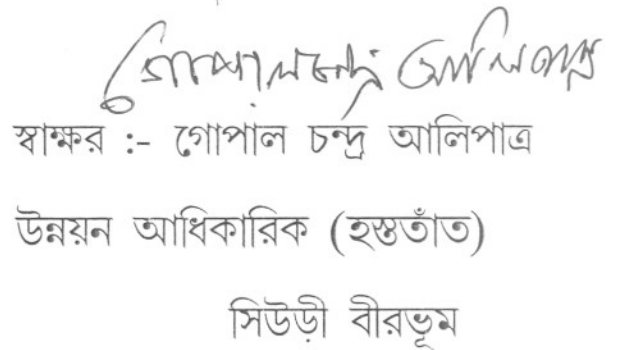 গোপালচন্দ্র আলিপাত্র
স্বাক্ষর :- গোপাল চন্দ্র আলিপাত্র
উন্নয়ন আধিকারিক (হস্ততাঁত)
সিউড়ী বীরভূম